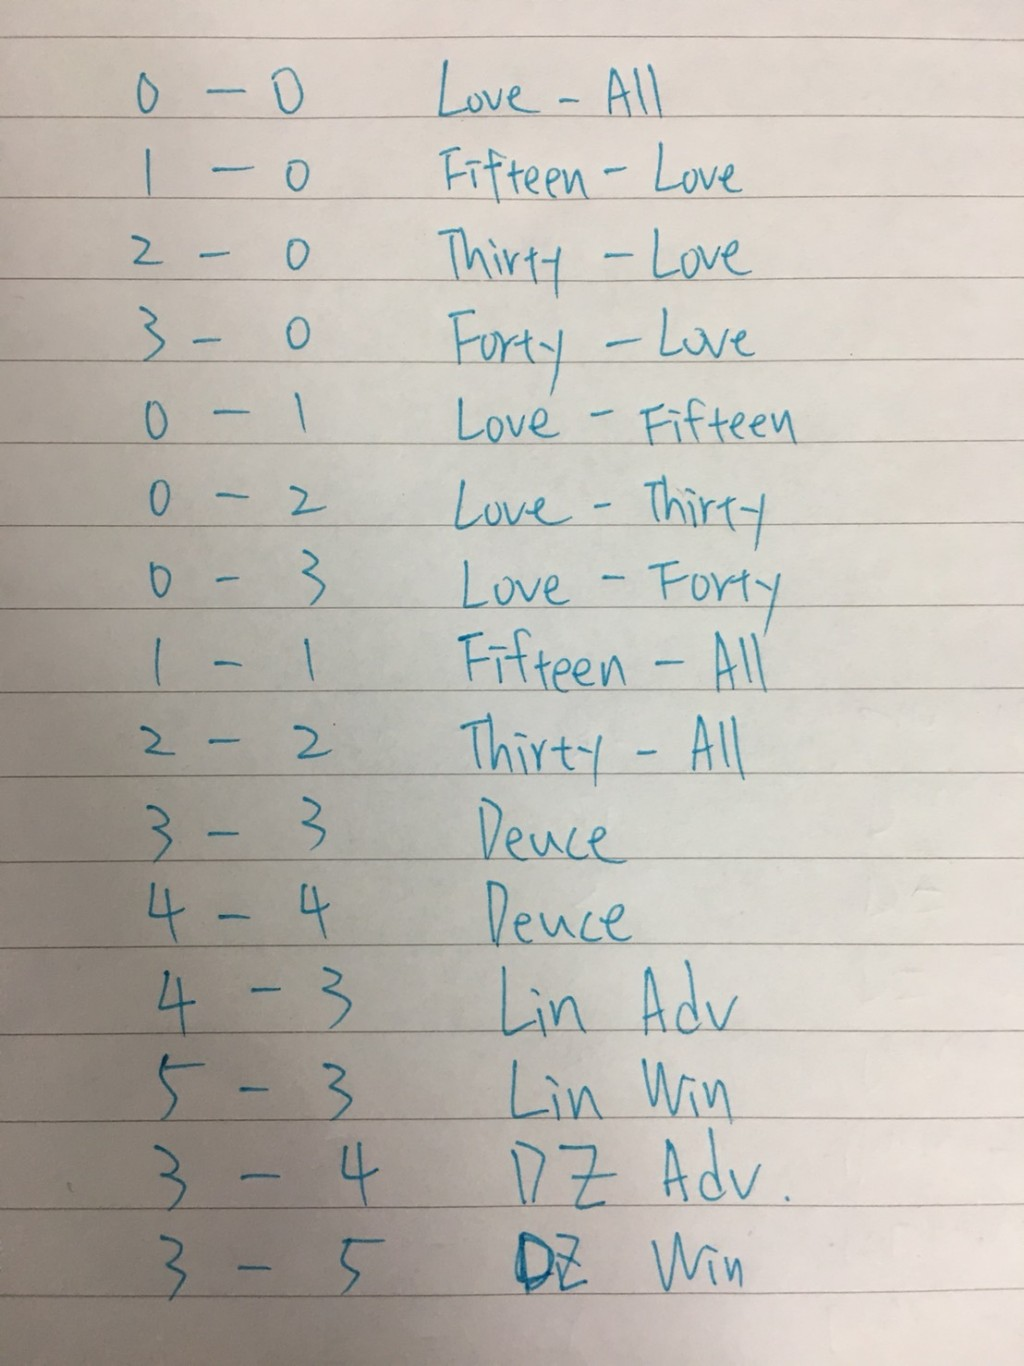 0 - 0 Love - All
1 - 0 Fifteen - Love
2 - 0 Thirty - Love
3 - 0 Forty - Love
0 - 1 Love - Fifteen
0 - 2 Love - Thirty
0 - 3 Love - Forty
1 - 1 Fifteen - All
2 - 2 Thirty - All
3 - 3 Deuce
4 - 4 Deuce
4 - 3 Lin Adv
5 - 3 Lin Win
3 - 4 DZ Adv.
3 - 5 DZ Win